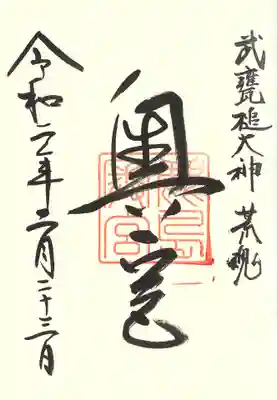 武甕槌大神 荒魂
奥宮
令和二年二月二十三日